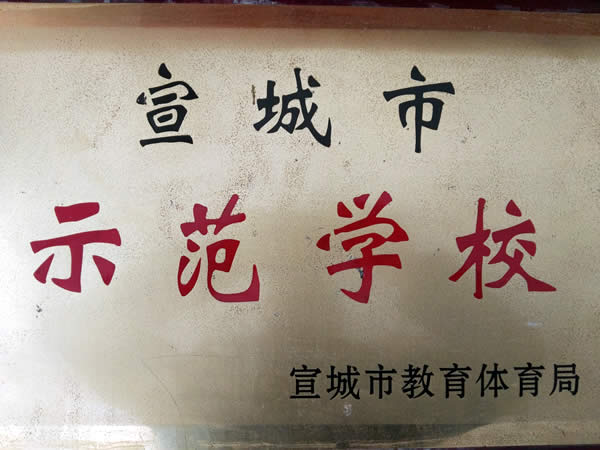 宣城市
示范学校
宣城市教育体育局